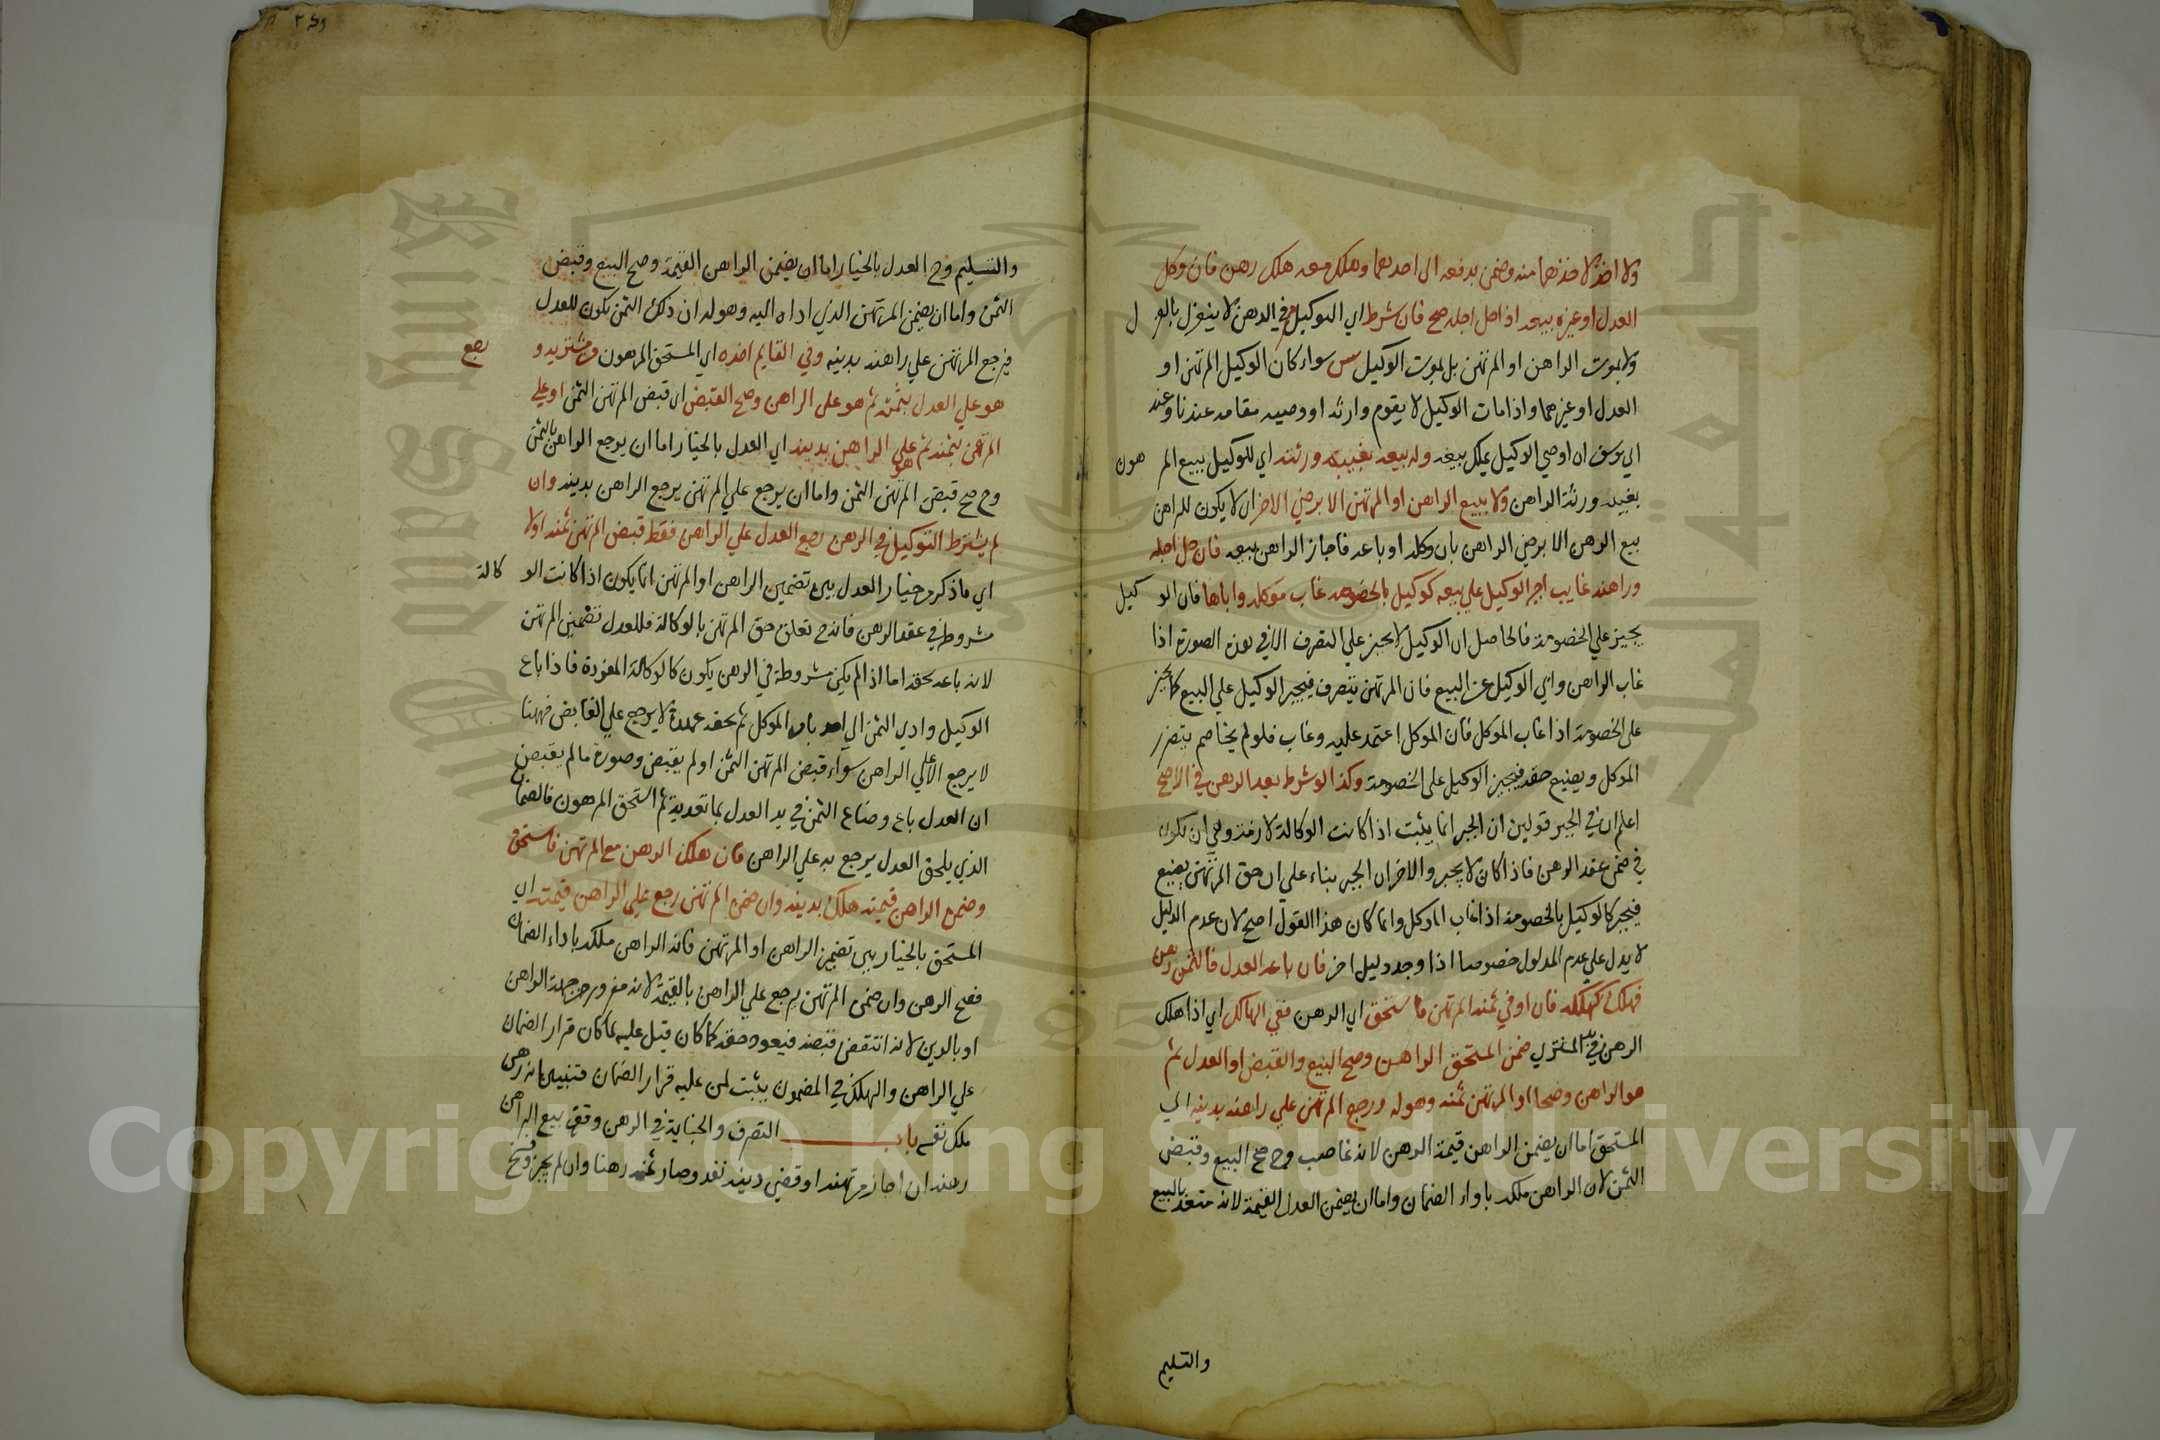 ولا اخذ لاحدهما منه وضمن بدفعه الى احدهما وهلك معه هلك رهن فان وكل
العدل او غيره ببيعه اذا حل اجله صح فان شرط اي التوكيل في الرهن لا ينعزل بالعزل
ولا بموت الراهن او المرتهن بل بموت الوكيل سواء كان الوكيل المرتهن او
العدل او غيرهما واذا مات الوكيل لا يقوم وارثه او وصيه مقامه عندنا وعند
ابي يوسف ان اوصي الوكيل يملك بيعه وله بيعه بغيبة ورثته اي للوكيل بيع المرهون
بغيبة ورثة الراهن ولا يبيع الراهن او المرتهن الا برضي الاخر اي لا يكون للراهن
بيع الرهن الا برضي الراهن بان وكله او باعه فاجاز الراهن بيعه فان حل اجله
وراهنه غايب اجبر الوكيل علي بيعه كوكيل بالخصومة غاب موكله واباها فان الوكيل
يجبر علي الخصومة فالحاصل ان الوكيل لا يجبر علي التصرف الا في هذه الصورة اذا
غاب الراهن وابي الوكيل عن البيع فان المرتهن يتضرر فيجبر الوكيل علي البيع كما يجبر
على الخصومة اذا غاب الموكل فان الموكل اعتمد عليه وغاب فلو لم يخاصم يتضرر
الموكل ويضيع حقه فيجبر الوكيل على الخصومة وكذا لو شرط بعد الرهن في الاصح
اعلم ان في الجبر قولين ان الجبر انما يثبت اذا كانت الوكالة لازمة وهي ان يكون
في ضمن عقد الرهن فاذا كان لا يجبر والاخر ان الجبر بناء علي ان حق المرتهن يضيع
فيجبر كالوكيل بالخصومة اذا غاب الموكل وانما كان هذا القول اصح لان عدم الدليل
لا يدل علي عدم المدلول خصوصا اذا وجد دليل اخر فان باعه العدل فالثمن رهن
فهلكه كهلكه فان اوفي ثمنه المرتهن فاستحق اي الرهن ففي الهالك اي اذا هلك
الرهن في يد المشتري ضمن المستحق الراهن وصح البيع والقبض او العدل ثم
هو الراهن وصحا او المرتهن ثمنه وهو له ورجع المرتهن علي راهنه بدينه اي
المستحق اما ان يضمن الراهن قيمة الرهن لانه غاصب وح صح البيع وقبض
الثمن لان الراهن ملكه باداء الضمان واما ان يضمن العدل القيمة لانه متعد بالبيع
والتسليم
والتسليم وح العدل بالخيار اما ان يضمن الراهن القيمة وصح البيع وقبض
الثمن واما ان يضمن المرتهن الذي اداه اليه وهو له ان ذلك الثمن يكون للعدل
فيرجع المرتهن علي راهنه بدينه وفي القايم اخذه اي المستحق المرهون من مشتريه و رجع
هو علي العدل بثمنه ثم هو على الراهن وصح القبض اي قبض المرتهن الثمن او علي
المرتهن بثمنه ثم هو علي الراهن بدينه اي العدل بالخيار اما ان يرجع الراهن بالثمن
وح صح قبض المرتهن الثمن واما ان يرجع علي المرتهن يرجع الراهن بدينه وان
لم يشترط التوكيل في الرهن رجع العدل علي الراهن فقط قبض المرتهن ثمنه اولا
اي ما ذكر من خيار العدل بين تضمين الراهن او المرتهن انما يكون اذا كانت الوكالة
مشروطة في عقد الرهن فانه ح تعلق حق المرتهن بالوكالة فللعدل تضمين المرتهن
لانه باعه بحقه اما اذا لم يكن مشروطة في الرهن يكون كالوكالة المفردة فاذا باع
الوكيل وادي الثمن الي احد بامر الموكل ثم لحقه عهدة لا يرجع علي القابض فههنا
لا يرجع الا علي الراهن سواء قبض المرتهن الثمن او لم يقبض وصورة ما لم يقبض
ان العدل باع وضاع الثمن في يد العدل بلا تعديه ثم استحق المرهون فالضمان
الذي يلحق العدل يرجع به علي الراهن فان هلك الرهن مع المرتهن فاستحق
وضمن الراهن قيمته هلك بدينه وان ضمن المرتهن رجع علي الراهن قيمته اي
المستحق بالخيار بين تضمين الراهن او المرتهن فانه الراهن ملكه باداء الضمان
فصح الرهن وان ضمن المرتهن يرجع علي الراهن بالقيمة لانه مغرور من جهة الراهن
او بالدين لانه انتقض قبضه فيعود حقه كما كان قيل عليه لما كان قرار الضمان
علي الراهن والملك في المضمون يثبت لمن عليه قرار الضمان فتبين انه رهن
ملك نفسه باب التصرف والجناية في الرهن وقف بيع الراهن
رهنه ان اجاز مرتهنه او قضي دينه نفد وصار ثمنه رهنا وان لم يجز وفسخ